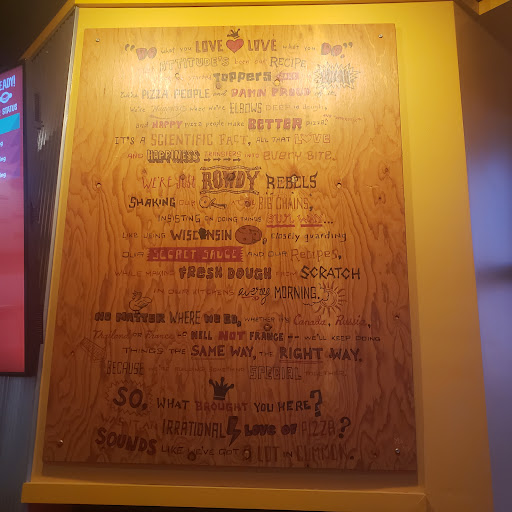 READY!
STATUS
"DO what you LOVE LOVE what you DO"
ATTITUDE'S been our RECIPE
TOPPERS
PIZZA PEOPLE and DAMN PROUD
we're happiest when we're ELBOWS DEEP in dough,
and HAPPY pizza people make BETTER pizza.
IT'S A SCIENTIFIC FACT, ALL THAT LOVE
AND HAPPINESS TRANSFERS INTO EVERY BITE.
WE'RE JUST ROWDY REBELS
SHAKING OUR AT BIG CHAINS,
INSISTING ON DOING THINGS OUR WAY...
LIKE USING WISCONSIN , closely guarding
OUR SECRET SAUCE AND OUR RECIPES,
WHILE MAKING FRESH DOUGH FROM SCRATCH
IN OUR KITCHENS every MORNING.
NO MATTER WHERE WE GO, WHETHER IT'S Canada, Russia,
Thailand or France - HELL NOT FRANCE - WE'LL KEEP DOING
THINGS THE SAME WAY, THE RIGHT WAY.
BECAUSE SPECIAL
SO, WHAT BROUGHT YOU HERE?
IRRATIONAL LOVE OF PIZZA?
SOUNDS LIKE WE'VE GOT A LOT IN COMMON.